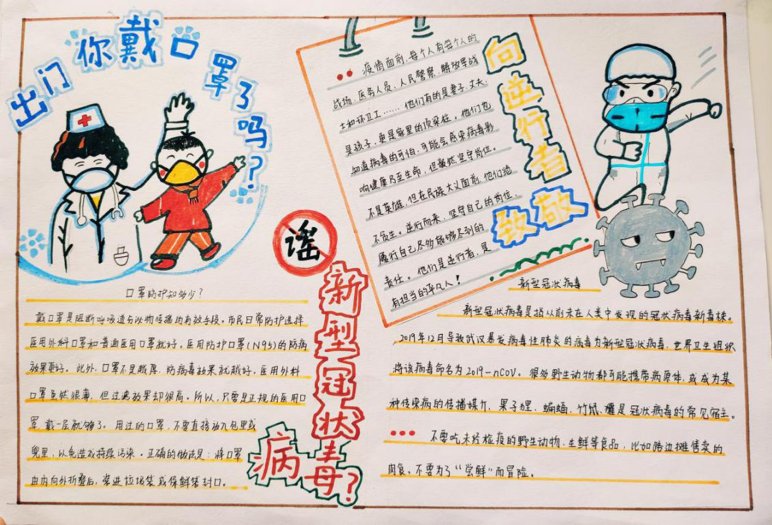 出门你戴口罩了吗?
口罩防护知多少?
戴口罩是阻断呼吸道分泌物传播的有效手段。市民日常防护选择
医用外科口罩和普通医用口罩就好。医用防护口罩(N95)的防病
效果更好。此外,口罩不是越厚,防病毒效果就越好。医用外科
口罩虽然很薄,但过滤效果却很高。所以,只要是正规的医用口
罩戴一层就够了。用过的口罩,不要直接放入包里或
兜里,以免造成持续污染。正确的做法是:将口罩
由内向外折叠后,装进垃圾袋或保鲜袋封口。
谣
新型冠状病毒?
疫情面前,每个人有每个人的
战场,医务人员,人民警察,解放军战
士和环卫工……他们有的是妻子、丈夫
是孩子,更是家里的顶梁柱。他们也
知道病毒的可怕,可能会感染病毒影
响健康乃至生命,但毅然坚守岗位。
不是英雄,但在民族大义面前,他们临
不畏生。逆行而来,坚守自己的岗位,
履行自己尽力能够尽到的
责任。他们是逆行者,是
有担当的平凡人!
向逆行者
致敬
新型冠状病毒
新型冠状病毒是指从前未在人类中发现的冠状病毒新毒株。
2019年12月导致武汉暴发病毒性肺炎的病毒为新型冠状病毒,世界卫生组织
将该病毒命名为2019-nCOV。很多野生动物都可能携带病原体,或成为某
种传染病的传播媒介,果子狸,蝙蝠,竹鼠,獾是冠状病毒的常见宿主。
不要吃未经检疫的野生动物、生鲜等食品,比如路边摊售卖的
肉食。不要为了“尝鲜”而冒险。